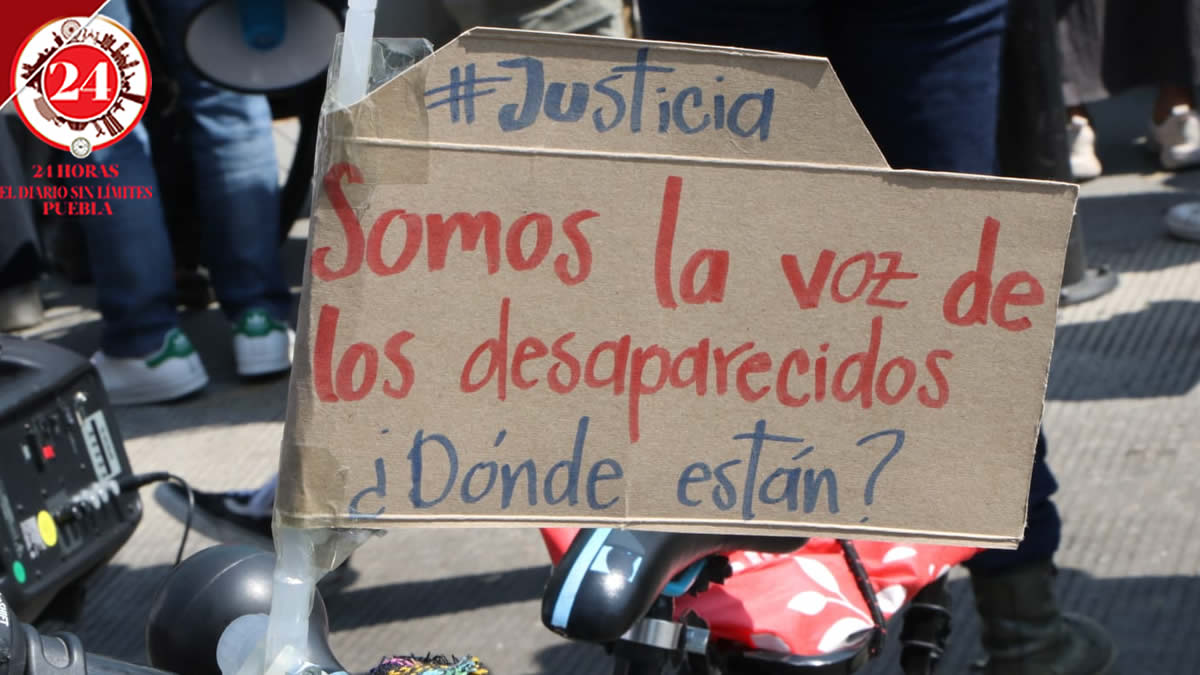 24
24 HORAS
EL DIARIO SIN LÍMITES
PUEBLA
#Justicia
Somos la voz de
los desaparecidos
¿Dónde están?